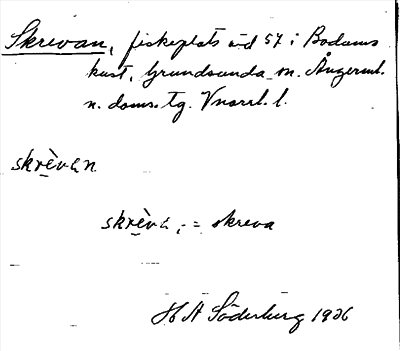 Skrevan, fiskeplats vid 57 i Bodums
kust, Grundsunda sn. Ångerml.
n. doms. tg. Vnorrl. l.
skrèvan
skrèva, = skreva
H A Söderberg 1926